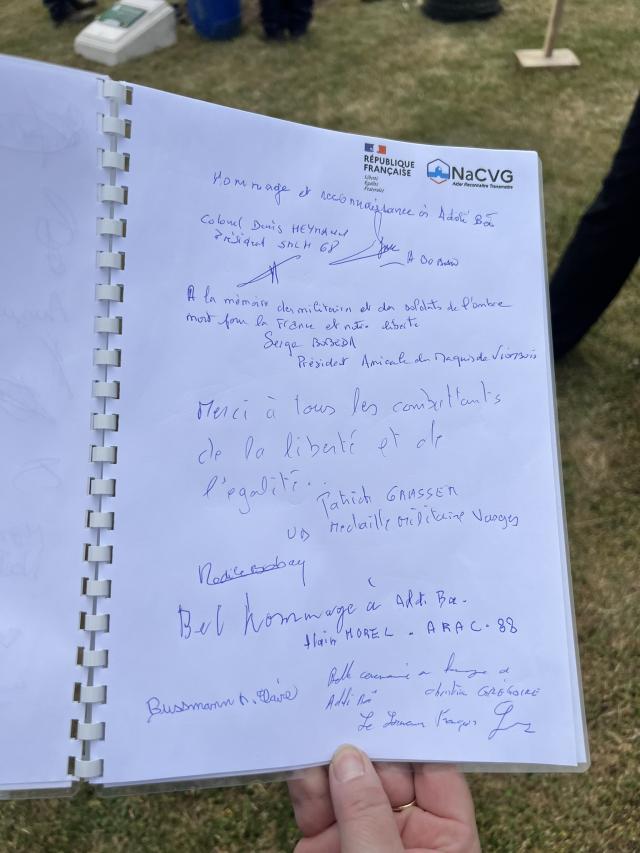 RÉPUBLIQUE
FRANÇAISE
Liberté
Égalité
Fraternité
NaCVG
Aider Reconnaître Transmettre
Hommage et reconnaissance à Addi Bâ
Colonel Denis
Président SMLH 68
A la mémoire des militaires et des soldats de l'ombre
mort pour la France et notre liberté
Serge
Président Amicale du Maquis de
Merci à tous les combattants
de la liberté et de
l'égalité...
Patrick GRASSER
UD Médaille Militaire Vosges
Bel hommage à Addi Ba.
Alain MOREL - ARAC - 88
Bussmann M. Claire
Belle
Addi Bâ
Christian GRÉGOIRE
François